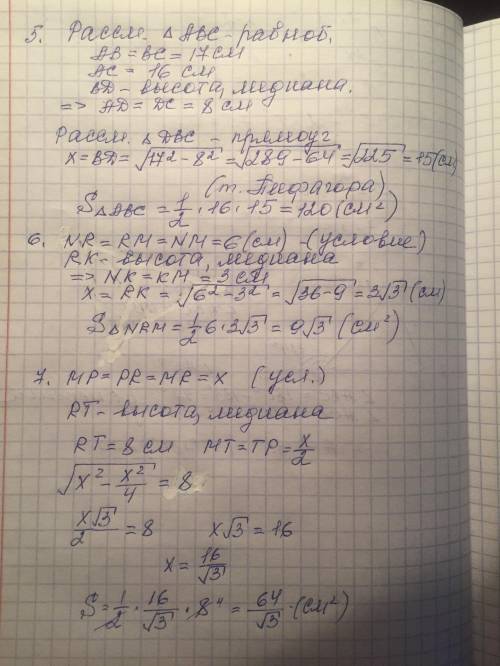 5. Рассм. △ABC - равноб.
AB = BC = 17 см
AC = 16 см
BD - высота, медиана.
=> AD = DC = 8 см
Рассм. △DBC - прямоуг
X = BD = √(17² - 8²) = √(289 - 64) = √225 = 15 (см)
(т. Пифагора)
S△ABC = 1/2 · 16 · 15 = 120 (см²)
6. NR = RM = NM = 6 (см) - (условие)
RK - высота, медиана
=> NK = KM = 3 см
X = RK = √(6² - 3²) = √(36 - 9) = 3√3 (см)
S△NRM = 1/2 6 · 3√3 = 9√3 (см²)
7. MP = PR = MR = X (усл.)
RT - высота, медиана
RT = 8 см MT = TP = X/2
√(X² - X²/4) = 8
X√3/2 = 8 X√3 = 16
X = 16/√3
S = 1/2 · 16/√3 · 8 4 = 64/√3 · (см²)